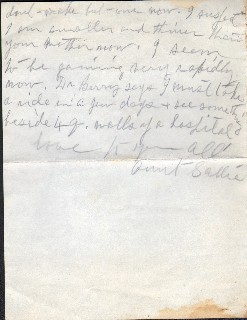 dont - make but one now. I
I am smaller and thiner than
your mother now. I seem
to be gaining very rapidly
now. Dr. Berry says I must take
a ride in a few days & see something
beside 4 walls of a hospital
Love to you all
Aunt Sallie